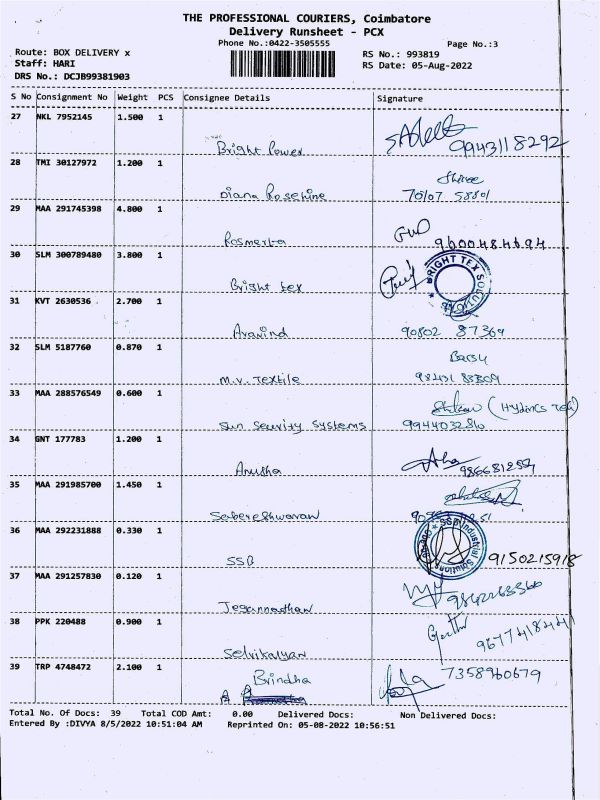 THE PROFESSIONAL COURIERS, Coimbatore
Delivery Runsheet - PCX
Phone No.:0422-3505555
Page No.:3
Route: BOX DELIVERY x
RS No.: 993819
Staff: HARI
RS Date: 05-Aug-2022
DRS No.: DCJB99381903
S No Consignment No Weight PCS Consignee Details Signature
27 NKL 7952145 1.500 1
Bright Power 9943118292
28 TMI 30127972 1.200 1
Diana Roseline
29 MAA 291745398 4.800 1
Rosmerta 9600484694
30 SLM 300789480 3.800 1
BRIGHT TEX SOLUTIONS
Bright tex
31 KVT 2630536 1.700 1
Aravind 90802 87369
32 SLM 5187760 0.870 1
M.V. Textile
33 MAA 288576549 0.600 1
Sun Security Systems
34 GNT 177783 1.200 1
Anusha
35 MAA 291985700 1.450 1
Sabareshwaran
36 MAA 292231888 0.330 1
SSP Industrial Solutions
9150215918
37 MAA 291257830 0.120 1
Jegannadhan
38 PPK 220488 0.900 1
Selvikalyan
39 TRP 4748472 2.100 1
Brindha 7358960679
Total No. Of Docs: 39 Total COD Amt: 0.00 Delivered Docs: Non Delivered Docs:
Entered By :DIVYA 8/5/2022 10:51:04 AM Reprinted On: 05-08-2022 10:56:51